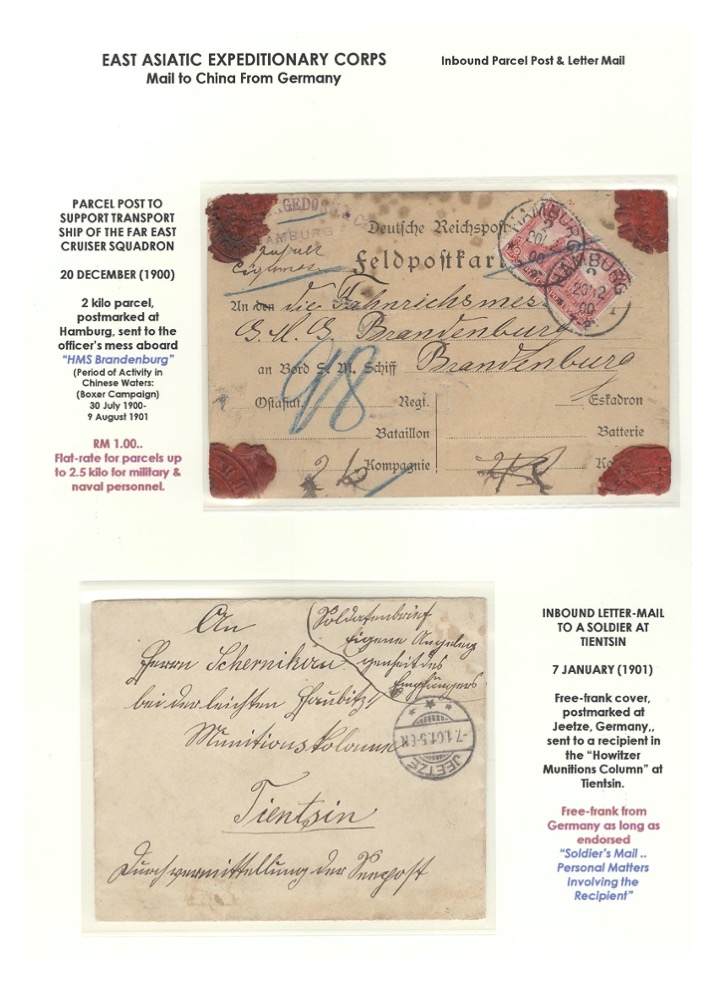 EAST ASIATIC EXPEDITIONARY CORPS
Mail to China From Germany
Inbound Parcel Post & Letter Mail
PARCEL POST TO
SUPPORT TRANSPORT
SHIP OF THE FAR EAST
CRUISER SQUADRON
20 DECEMBER (1900)
2 kilo parcel,
postmarked at
Hamburg, sent to the
officer's mess aboard
"HMS Brandenburg"
(Period of Activity in
Chinese Waters:
(Boxer Campaign)
30 July 1900-
9 August 1901
RM 1.00..
Flat-rate for parcels up
to 2.5 kilo for military &
naval personnel.
HAMBURG
Deutsche Reichspost
Feldpostkart
HAMBURG
HAMBURG
20 12
00
An den die Fähnrichsmes
S. M. S. Brandenburg
an Bord S. M. Schiff Brandenburg
98
Ostasiat. Regt.
Eskadron
Bataillon
Batterie
2 Kompagnie
An
Soldatenbrief
Eigene Angeleg
genheit des
Empfängers
Herrn Schernikau
bei der leichten Haubitz
Munitionskolonne
-7.1.01.5-6N
JEETZE
Tientsin
Durch vermittellung der Seepost
INBOUND LETTER-MAIL
TO A SOLDIER AT
TIENTSIN
7 JANUARY (1901)
Free-frank cover,
postmarked at
Jeetze, Germany,,
sent to a recipient in
the "Howitzer
Munitions Column" at
Tientsin.
Free-frank from
Germany as long as
endorsed
"Soldier's Mail ..
Personal Matters
Involving the
Recipient"